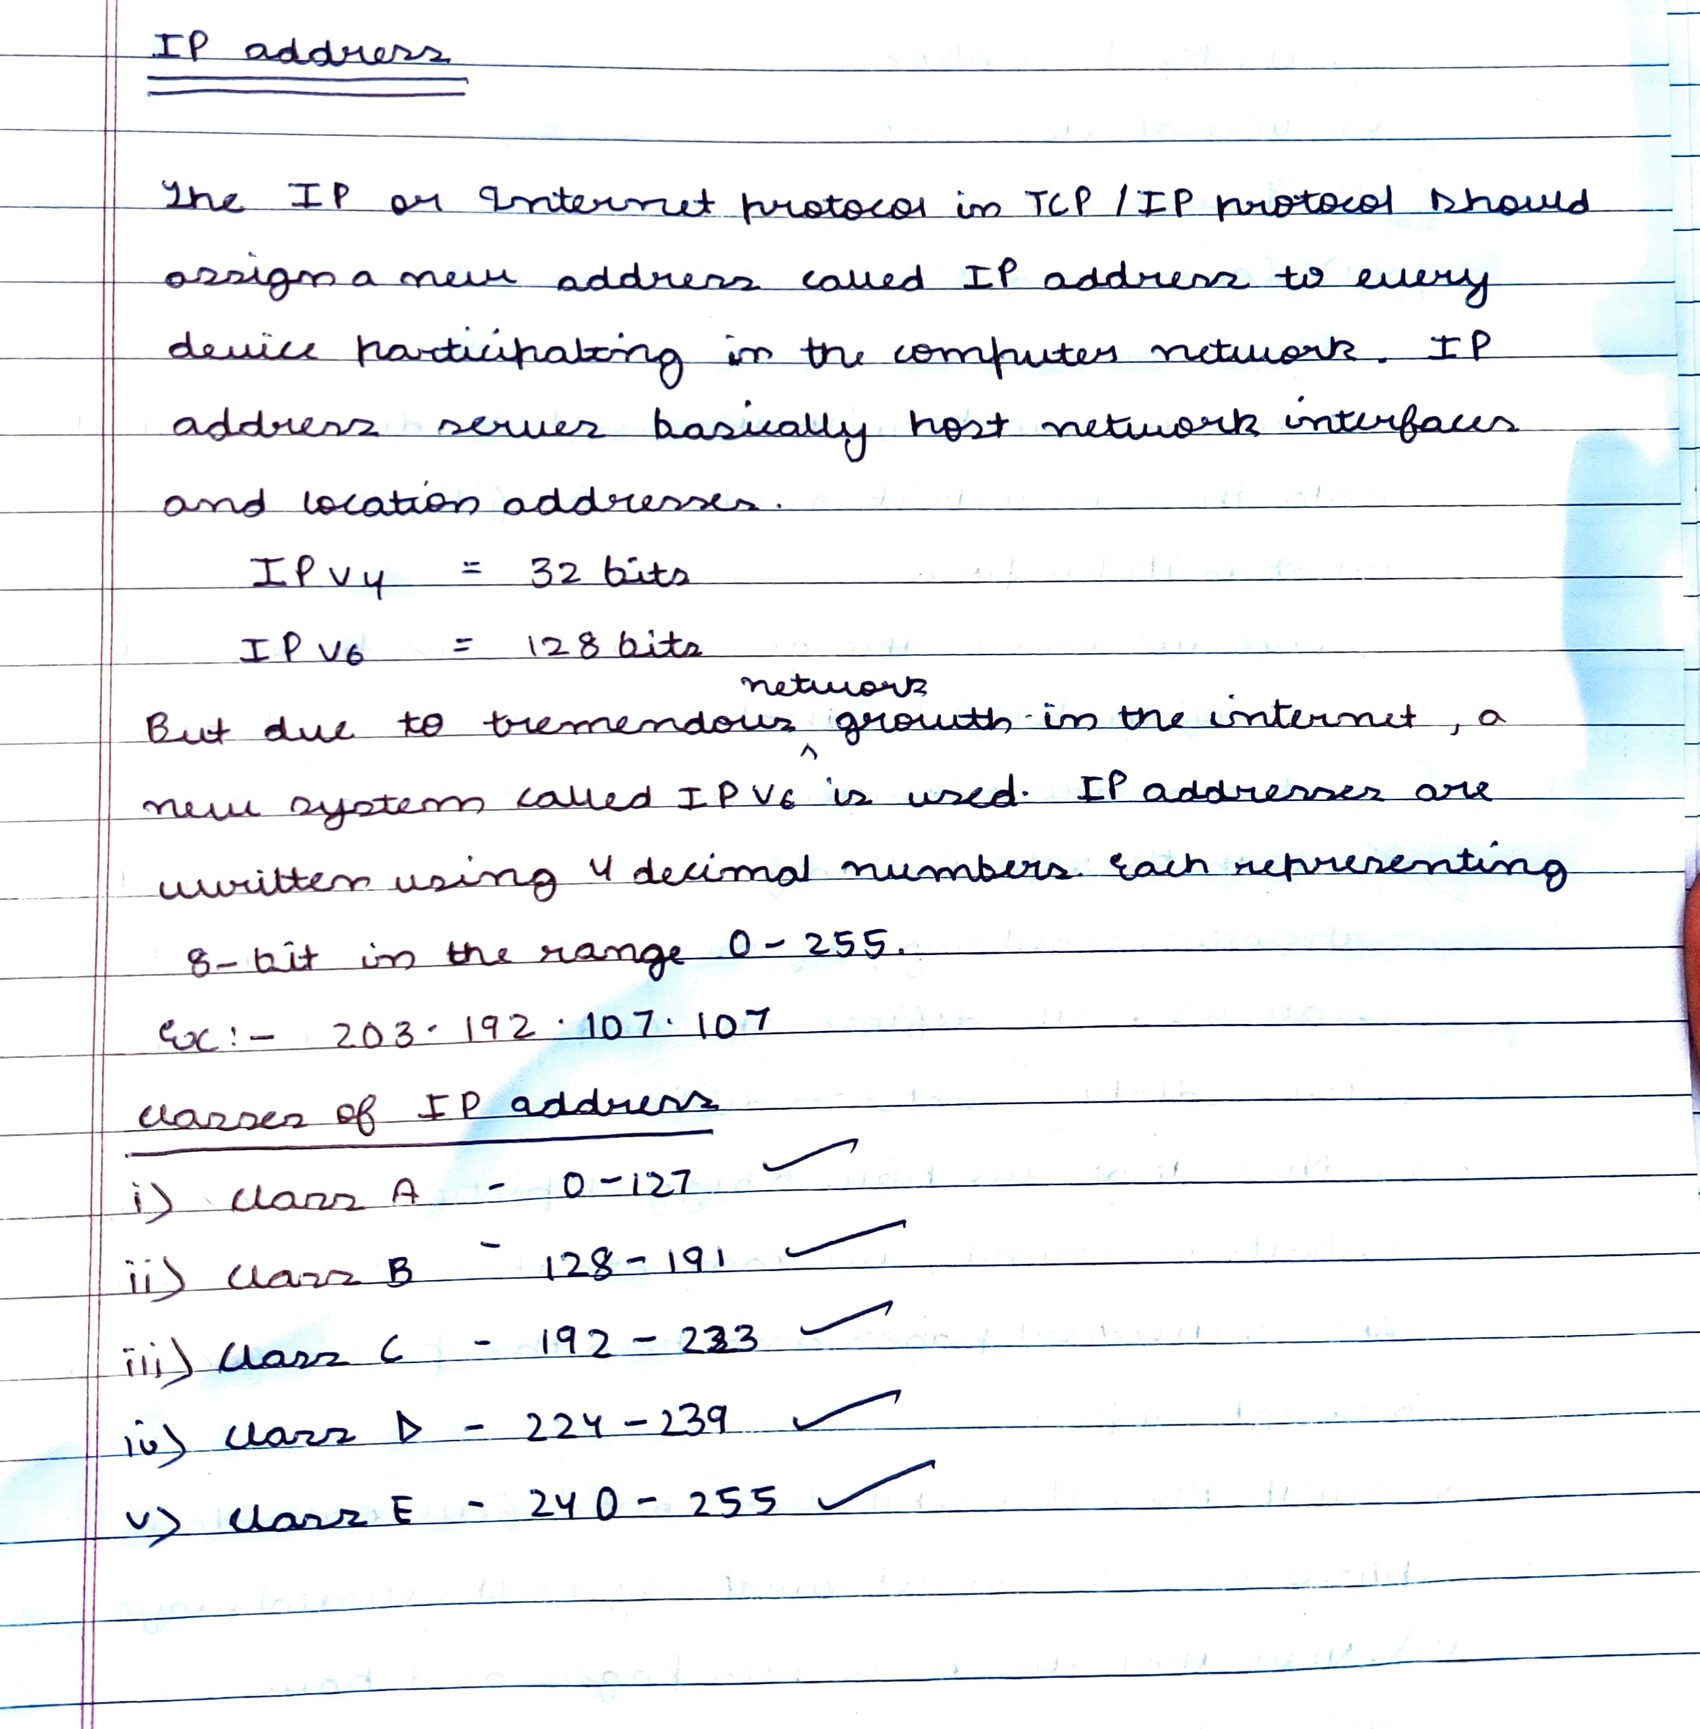 IP address
The IP or Internet protocol in TCP/IP protocol should
assign a new address called IP address to every
device participating in the computer network. IP
address serves basically host network interfaces
and location addresses.
IPv4 = 32 bits
IPv6 = 128 bits
But due to tremendous network growth in the internet, a
new system called IPv6 is used. IP addresses are
written using 4 decimal numbers. Each representing
8-bit in the range 0-255.
Ex:- 203.192.107.107
Classes of IP address
i) Class A - 0-127
ii) Class B - 128-191
iii) Class C - 192-223
iv) Class D - 224-239
v) Class E - 240-255